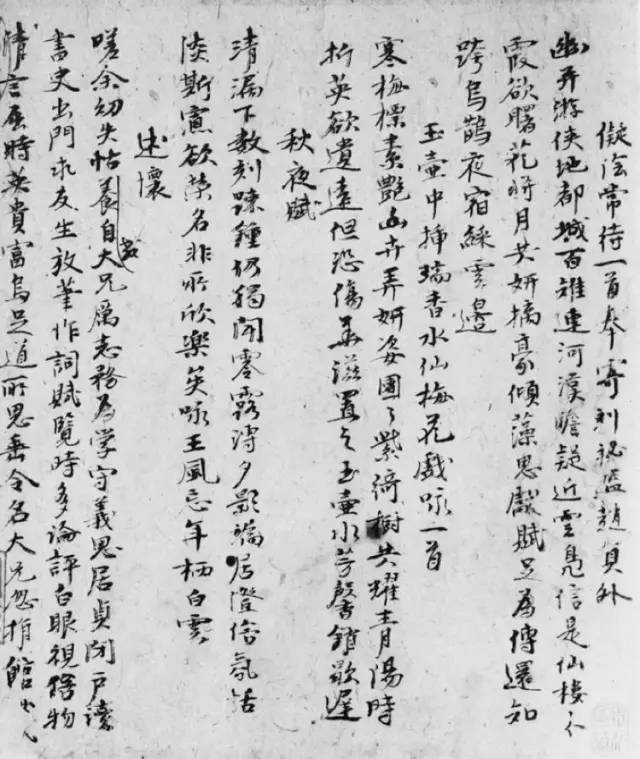 儗陰常待一首奉寄利秘監趙員外
幽弄游侠地都城百雉連河漢瞻疑近雲是信是仙楼子
霞欲曙花將月共妍摛豪傾藻思獻賦足為傳還知
跨烏鵲夜宿綵雲邊
玉壺中插瑞香水仙梅花戲咏一首
寒梅標素艷幽卉弄妍姿團々紫綺樹共耀青陽時
折英欲遺遠但恐傷華滋置之玉壺水芳馨銷歇遲
秋夜賦
清漏下數刻疎鍾仍獨聞零露溥夕景端居澄俗氛恬
淡斯寡欲榮名非所欣樂矣咏王風忘年栖白雲
述懷
嗟余幼失怙養自大兄為志務為學守義思居貞閉戶讀
書史出門求友生放筆作詞賦覽時多論評白眼視俗物
清言屈時英貴富烏足道所思垂令名大兄忽捐館